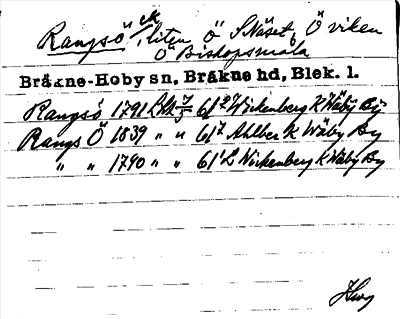 Rangsö ek
, liten Ö S Näset, Ö viken
Ö Bishopsmåla
Bräkne-Hoby sn, Bräkne hd, Blek. l.
Rangsö 1791 61² Wirkenberg K Wäby By
Rangs Ö 1839 " " 61² Ahlber K Wäby By
" " 1790 " " 61 L Wirkenberg K Wäby By